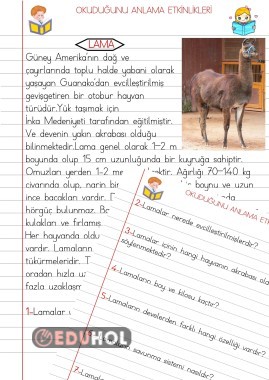 OKUDUĞUNU ANLAMA ETKİNLİKLERİ
LAMA
Güney Amerika'nın dağ ve
çayırlarında toplu halde yabani olarak
yaşayan Guanako'dan evcilleştirilmiş
gevişgetiren bir otobur hayvan
türüdür.Yük taşımak için
İnka Medeniyeti tarafından eğitilmiştir.
Ve devenin yakın akrabası olduğu
bilinmektedir.Lama genel olarak 1-2 m
boyunda olup 15 cm uzunluğunda bir kuyruğa sahiptir.
Omuzları yerden 1-2 Ağırlığı 70-140 kg
civarında olup, narin bir boynu ve uzun
ince bacakları vardır.
hörgüç bulunmaz.
kulakları ve fırlamış
Her hayvanda
vardır. Lamaların
tükürmeleridir.
oradan hızla
fazla uzaklaşır
1-Lamalar
OKUDUĞUNU ANLAMA
2-Lamalar nerede evcilleştirilmişlerdir?
3-Lamalar için hangi hayvanın akrabası
söylenmektedir?
4-Lamaların boy ve kilosu kaçtır?
5-Lamaların develerden farklı hangi özelliği vardır?
savunma sistemi nasıldır?
7-Lamal
EDUHOL